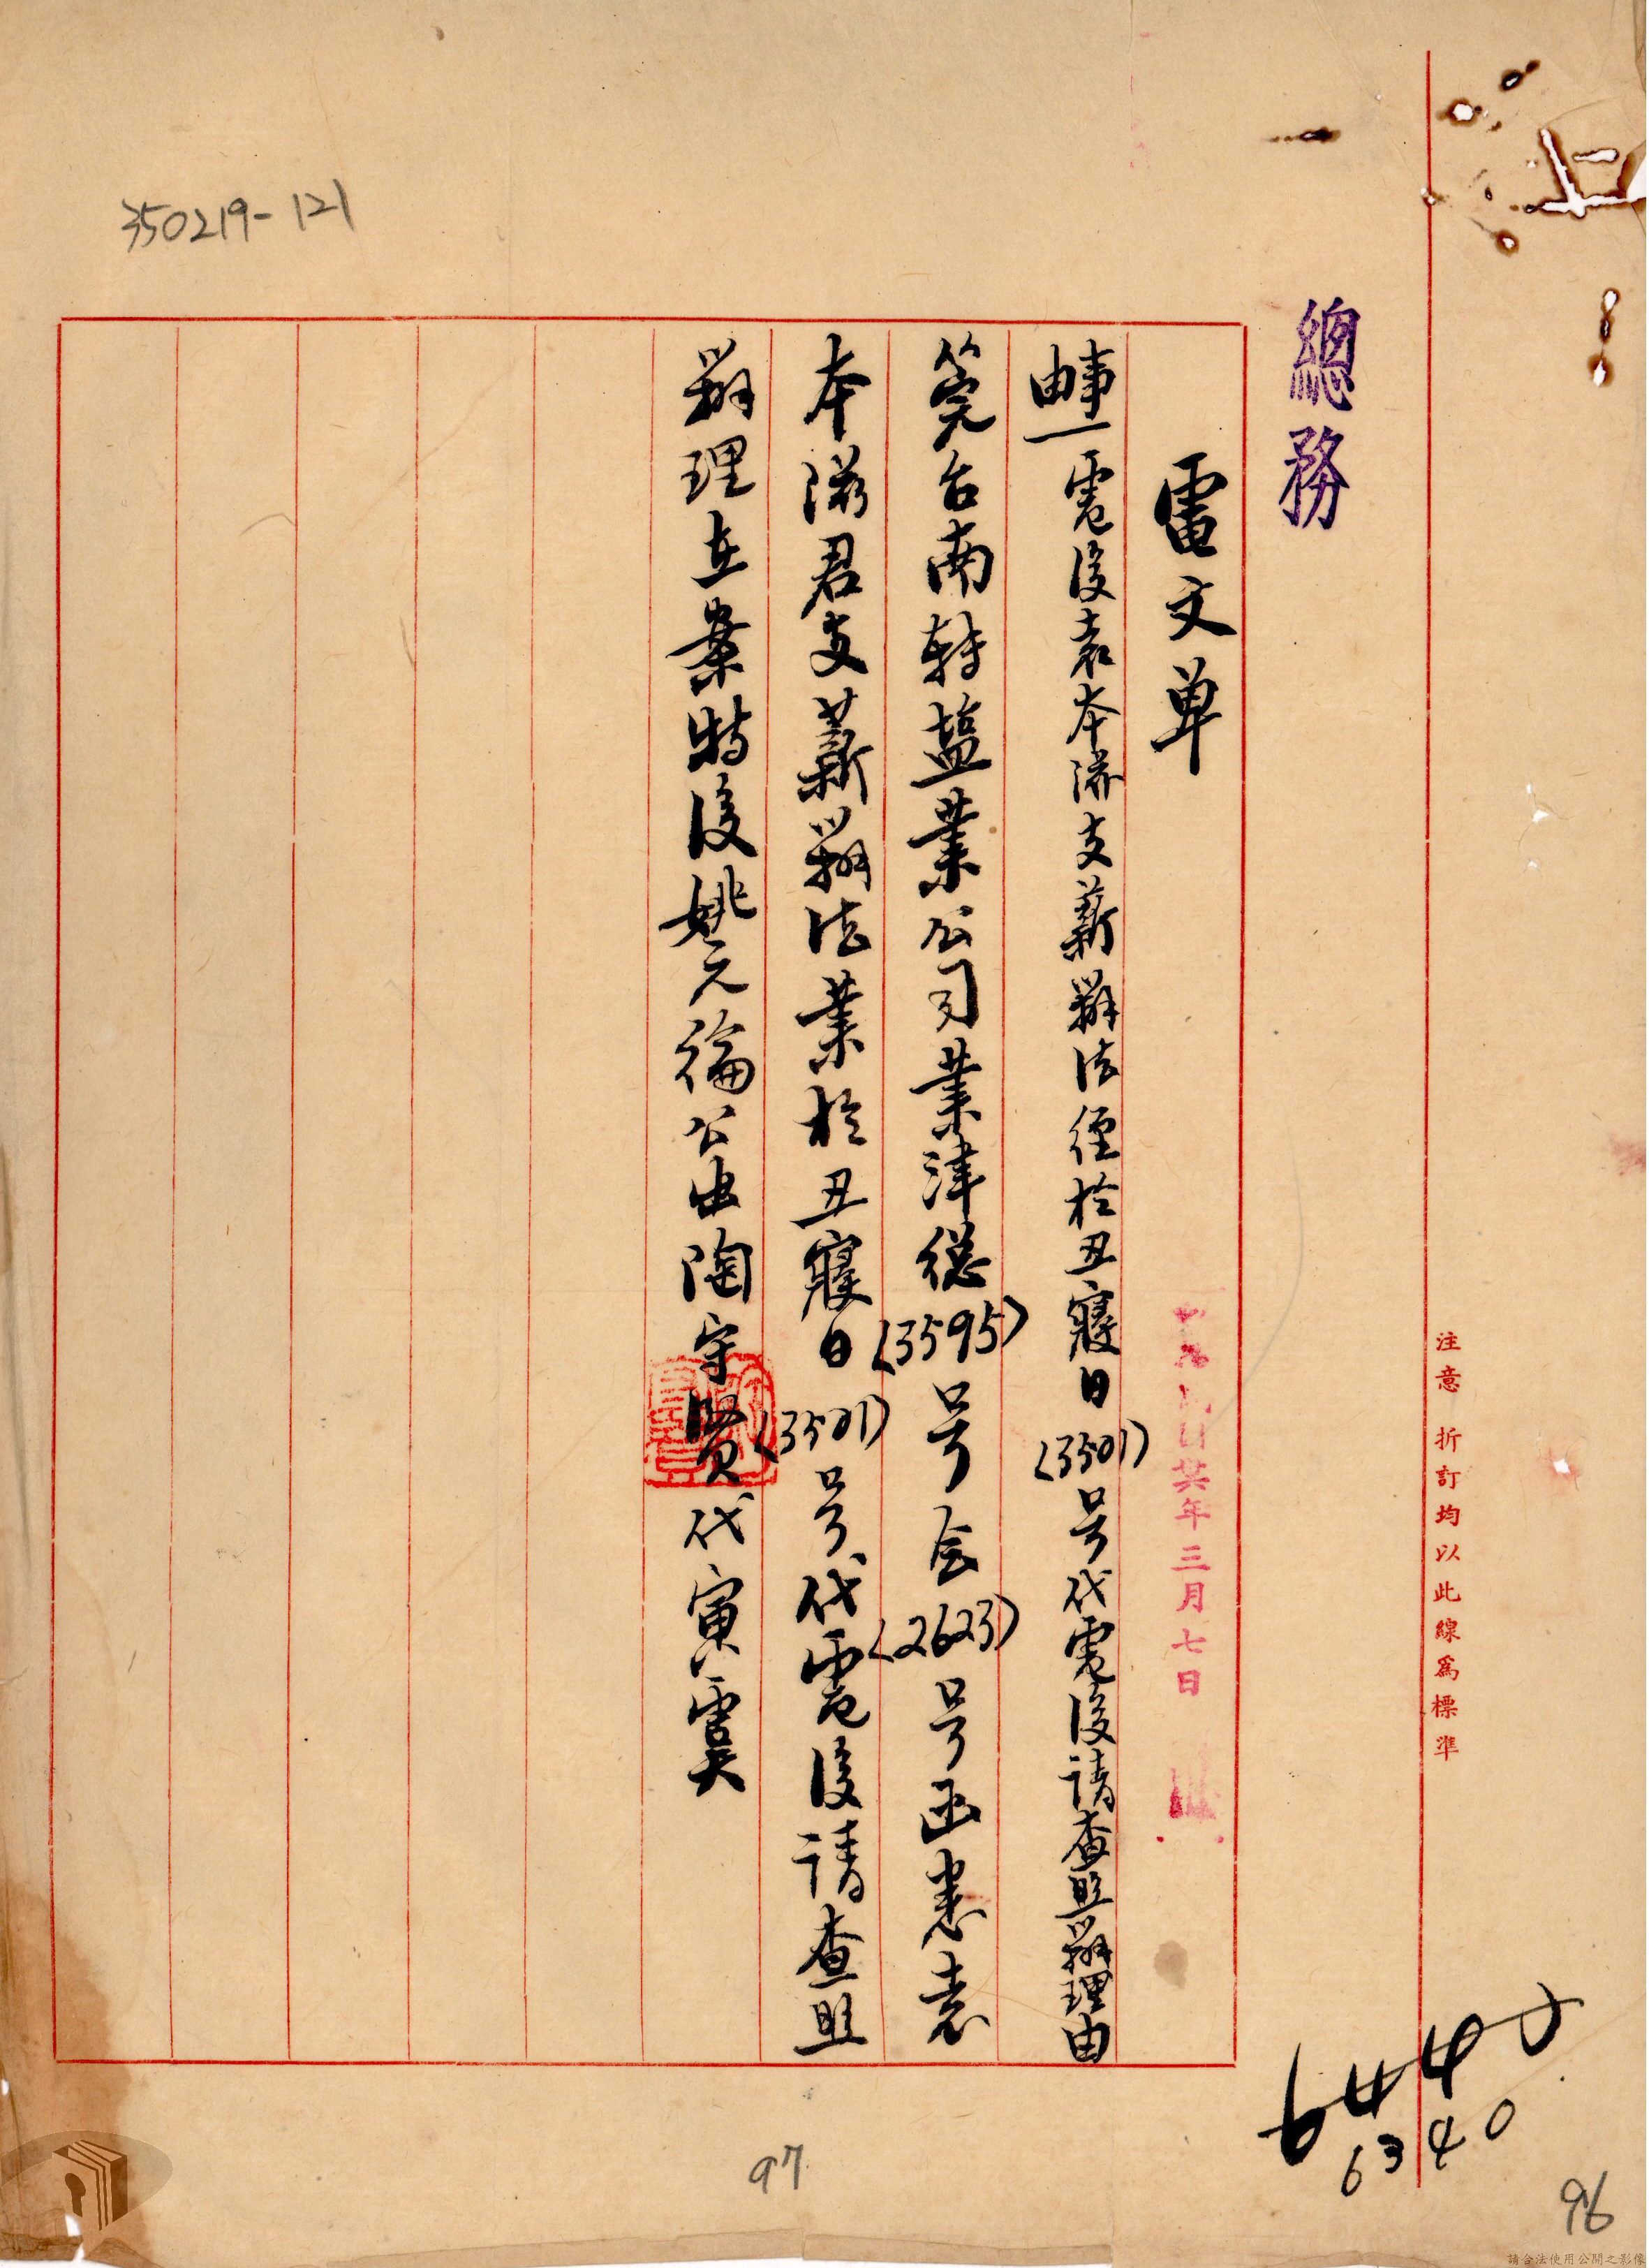 350219-121
總務
電文单
事由 電復袁本済支薪辦法径於丑寢日(3501)号代電復請查照辦理由
筦台南转盐業公司業津總(3595)号会(2623)号函悉袁
本済君支薪辦法業於丑寢日(3501)号代電復請查照
辦理在案特復姚元綸公出陶守賢代寅虞
年三月七日
注意 折訂均以此線為標準
6340
97
96
請合法使用公開之影像